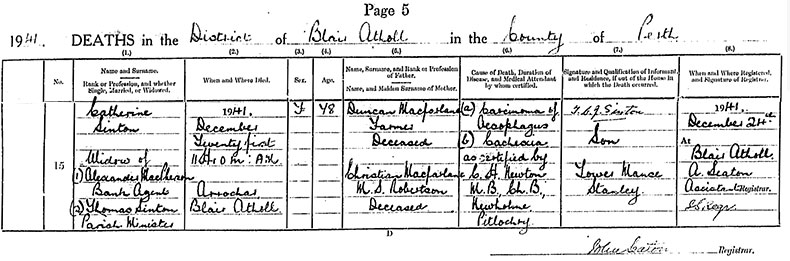 Page 5
1941. DEATHS in the District of Blair Atholl in the County of Perth
(1.) (2.) (3.) (4.) (5.) (6.) (7.) (8.)
No. Name and Surname. Rank or Profession, and whether Single, Married, or Widowed.
When and Where Died.
Sex.
Age.
Name, Surname, and Rank or Profession of Father.
Name, and Maiden Surname of Mother.
Cause of Death, Duration of Disease, and Medical Attendant by whom certified.
Signature and Qualification of Informant, and Residence, if out of the House in which the Death occurred.
When and Where Registered, and Signature of Registrar.
15
Catherine
Sinton
Widow of
(1) Alexander MacPherson
Bank Agent
(2) Thomas Sinton
Parish Minister
1941.
December
Twenty first
11h 10m A.M.
Arrochar
Blair Atholl
F
78
Duncan Macfarlane
Farmer
Deceased
Christian Macfarlane
M.S. Robertson
Deceased
(a) Carcinoma of
Oesophagus
(b) Cachexia
as certified by
C. H. Newton
M.B. Ch.B.,
Newholme
Pitlochry
Sinton
Son
Lower Manse
Stanley
1941
December 24th
At
Blair Atholl
A. Seaton
Assistant Registrar.
D
Registrar.